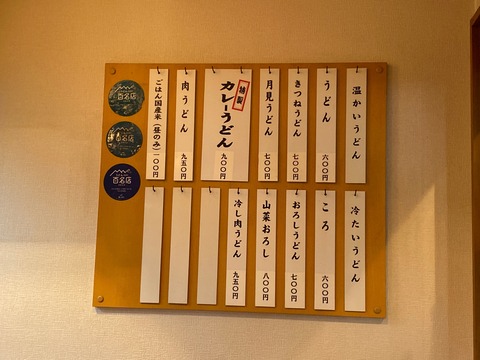 温かいうどん
うどん 六〇〇円
きつねうどん 七〇〇円
月見うどん 七〇〇円
特製 カレーうどん 九〇〇円
肉うどん 九五〇円
ごはん国産米(昼のみ)一〇〇円
冷たいうどん
ころ 六〇〇円
おろしうどん 七〇〇円
山菜おろし 八〇〇円
冷し肉うどん 九五〇円
百名店
百名店
百名店